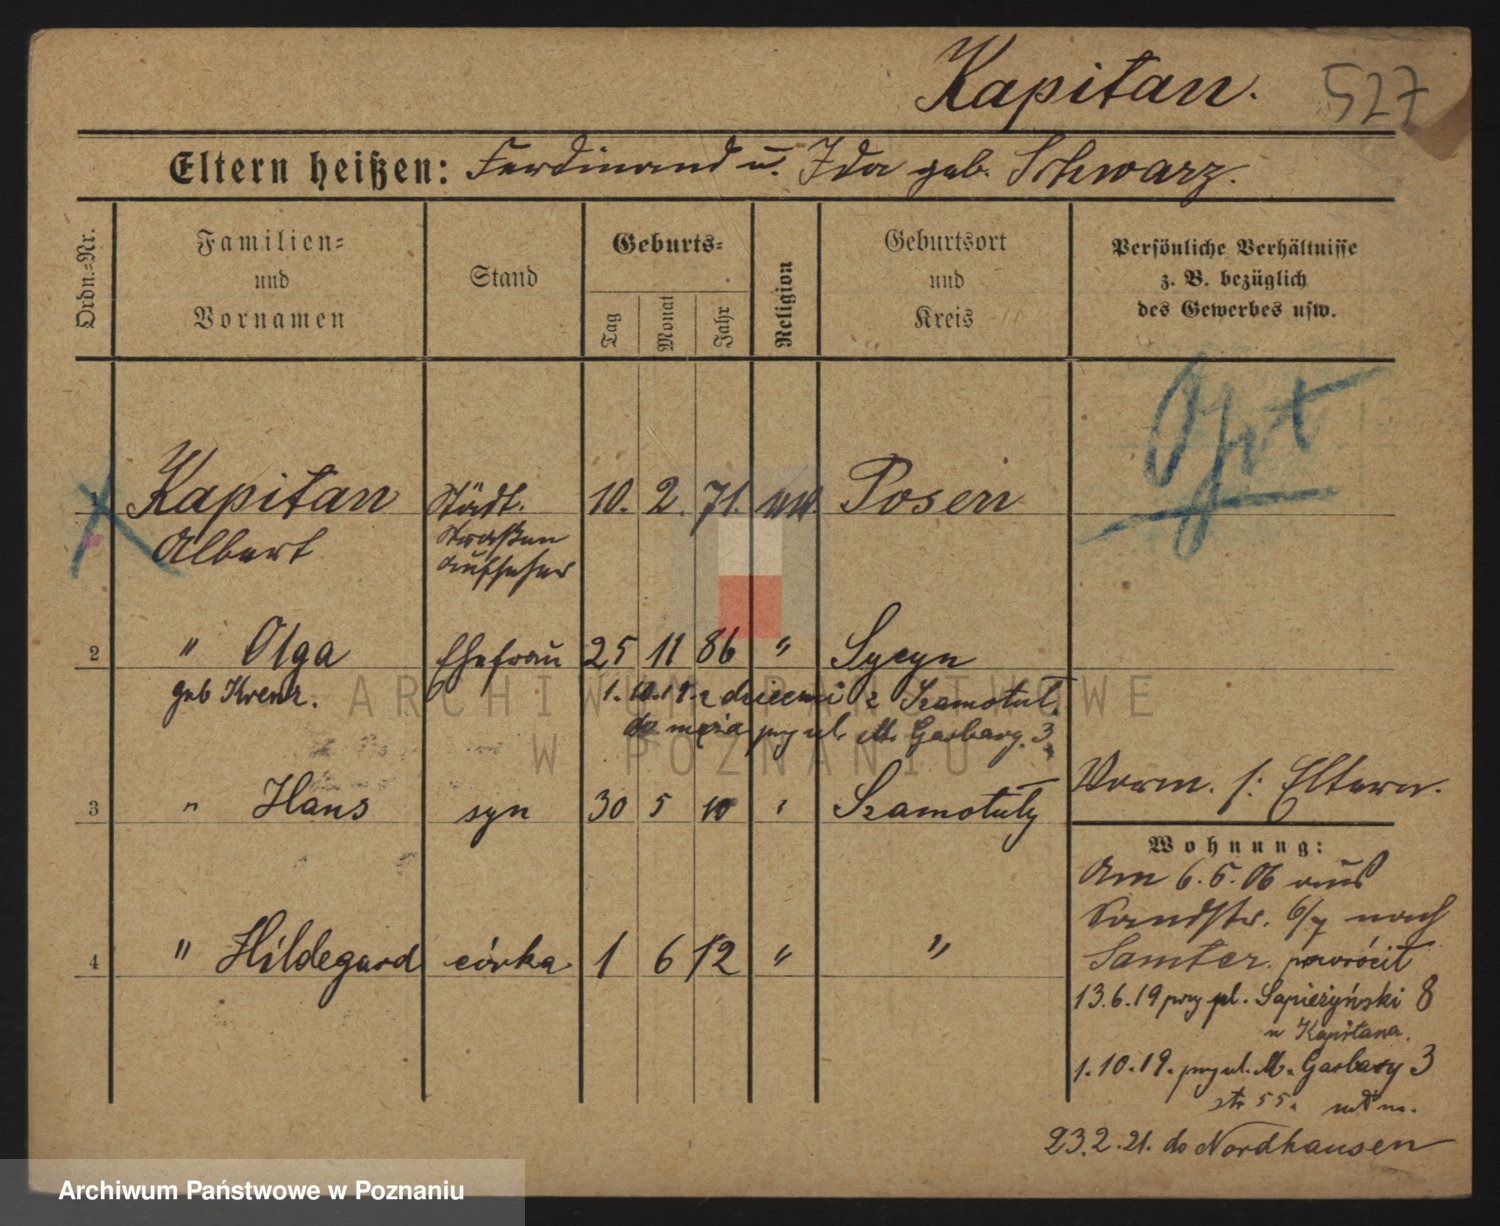 Kapitan.
527
Eltern heißen: Ferdinand u. Ida geb. Schwarz.
Ordn.-Nr.
Familien-
und
Vornamen
Stand
Geburts-
Tag
Monat
Jahr
Religion
Geburtsort
und
Kreis
Persönliche Verhältnisse
z. B. bezüglich
des Gewerbes usw.
Opt
1 Kapitan Städt. 10. 2. 71. Posen
Albert Straßen
aufseher
2 " Olga Ehefrau 25 11 86 " Sycyn
geb Krenz. 1.10.19. z dziećmi z Szamotuł.
do męża przy ul. M. Garbary. 3.
Vorm. s: Eltern.
3 " Hans syn 30 5 10 " Szamotuły
Wohnung:
Am 6.5.06 aus
Sandstr. 6/7 nach
4 " Hildegard córka 1 6 12 " "
Samter. powrócił
13.6.19 przy pl. Sapieżyński 8
u Kapitana.
1.10.19. przy ul. M. Garbary 3
str 55.
23.2.21. do Nordhausen
ARCHIWUM PAŃSTWOWE
W POZNANIU
Archiwum Państwowe w Poznaniu